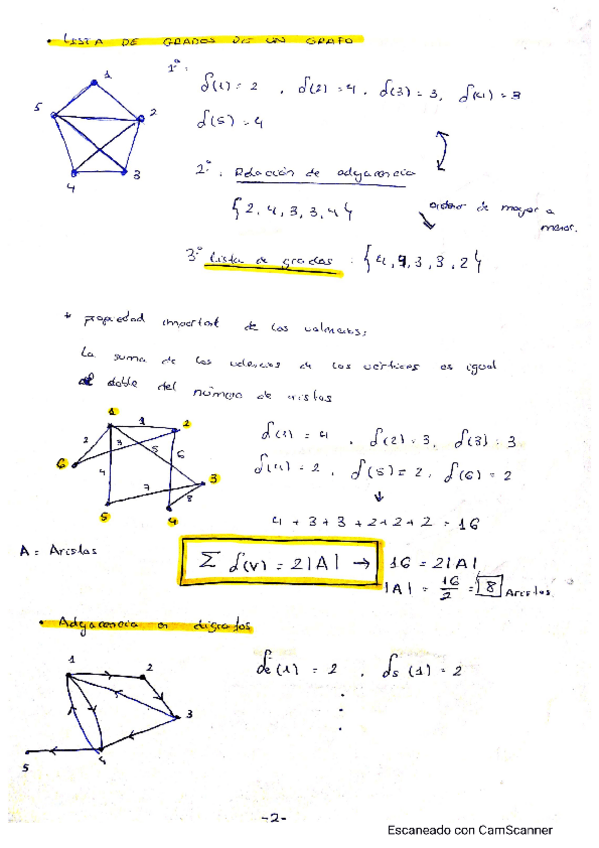 • LISTA DE GRADOS DE UN GRAFO
1º: δ(1) = 2 , δ(2) = 4 , δ(3) = 3, δ(4) = 3
δ(5) = 4
1
5
2
4
3
2º. Relación de adyacencia
{2, 4, 3, 3, 4}
ordenar de mayor a
menor.
3º Lista de grados : {4, 4, 3, 3, 2}
* propiedad important de las valencias:
La suma de las valencias de los vértices es igual
al doble del número de aristas
1
2
3
4
5
6
1
2
3
4
5
6
7
8
δ(1) = 4 , δ(2) = 3, δ(3) = 3
δ(4) = 2 , δ(5) = 2, δ(6) = 2
4 + 3 + 3 + 2 + 2 + 2 = 16
A = Aristas
Σ δ(v) = 2|A| → 16 = 2|A|
|A| = 16/2 = 8 Aristas
• Adyacencia en digrafos
1
2
3
4
5
δe (1) = 2 , δs (1) = 2
-2-
Escaneado con CamScanner